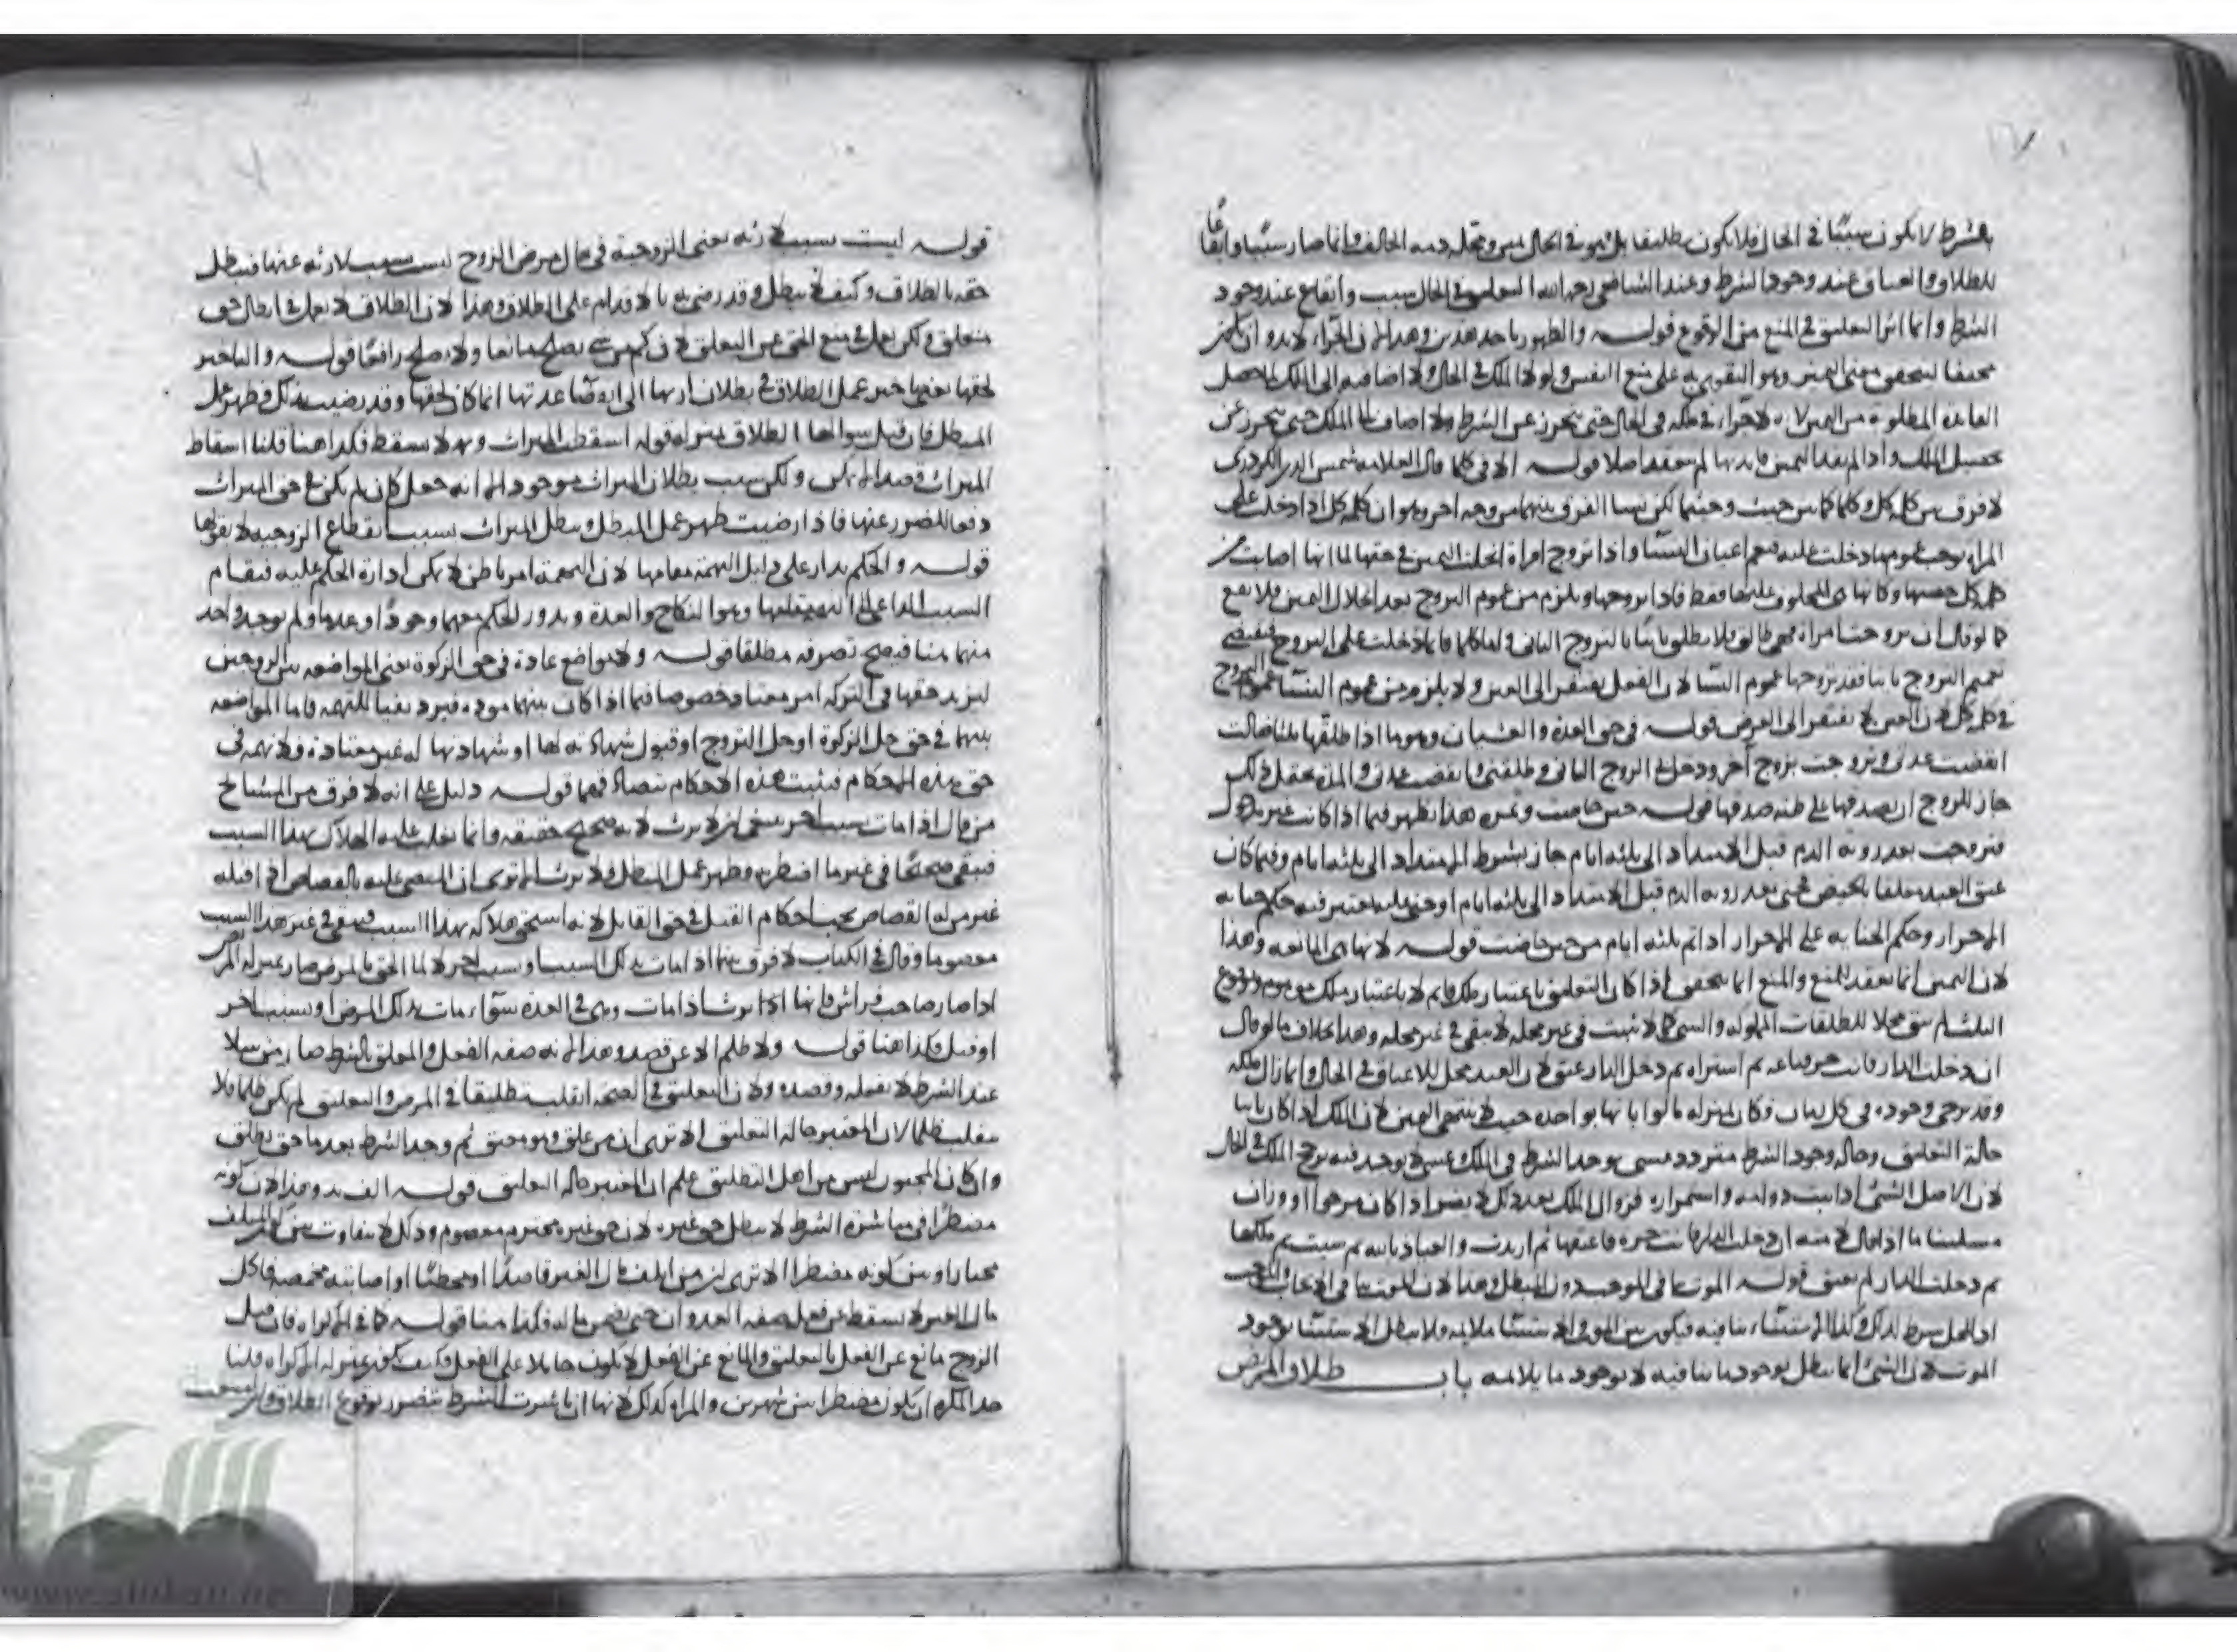 بالشرط لا يكون سببًا في الحال فلا يكون تطليقا بل هو في الحال يمين ومحله ذمة الحالف وانما صار سببًا وايقاعًا
للطلاق والعتاق عند وجود الشرط وعند الشافعي رحمه الله التعليق في الحال سبب وايقاع عند وجود
الشرط وانما اثر التعليق في المنع من الوقوع قوله والظهور باحد هذين وهذا لان الجزاء لا بد وان يكون
مخيفا ليتحقق معنى اليمين وهو التقوي به على منع النفس ولولا الملك في الحال ولا اضافته الى الملك لا يحصل
الفائدة المطلوبة من اليمين لانه لا جزاء في ملكه في الحال حتى يتحرز عن الشرط ولا اضاف الى الملك حتى يتحرز عن
تحصيل الملك واذا لم يفد اليمين فايدتها لم تنعقد اصلا قوله الا في كلما قال العلامة شمس الدين الكردري
لا فرق بين كلمة كل وكلما من حيث لكن بينا الفرق بينهما من وجه اخر وهو ان كلمة كل اذا دخلت على
المراة يوجب عموم ما دخلت عليه فيعم اعيان النساء واذا تزوج امراة انحلت اليمين في حقها لما انها اصابت من
كلمة كل حصتها وكانها هي المحلوف عليها فقط فاذا تزوجها ويلزم من عموم التزوج بعد انحلال اليمين فلا يقع
كما لو قال ان تزوجت امراة فهي طالق فلا يطلق ثانيا بالتزوج الثاني واما كلما فانما دخلت على التزوج فيقتضي
تعميم التزوج فاذا تزوجها عموم النسا لان الفعل يفتقر الى العين ولا يلزم من عموم النسا عموم التزوج
في كلمة كل لان العين لا تفتقر الى العرض قوله في حق العدة والغشيان وهو ما اذا طلقها ثلثا فقالت
انقضت عدتي وتزوجت بزوج آخر ودخل بي الزوج الثاني وطلقني وانقضت عدتي والمدة تحتمل ذلك
جاز للزوج ان يصدقها اذا كان غلب على ظنه صدقها قوله حين حاضت وثمرة هذا تظهر فيما اذا كانت غير مدخول
فتزوجت بعد رؤية الدم قبل الامتداد الى ثلثة ايام جاز بشرط الامتداد الى ثلثة ايام وفيما كان
عتق العبد معلقا بالحيض فجنى بعد رؤية الدم قبل الامتداد الى ثلثة ايام او جني عليه يعتبر فيه حكم جناية
الاحرار وحكم الجناية على الاحرار اذا تم ثلثة ايام من حين حاضت قوله لانها هي المانعة وهذا
لان اليمين انما تعقد للمنع والمنع انما يتحقق اذا كان التعليق باعتبار ملك قائم لا باعتبار ملك
الثلث لم يبق محلا للطلقات المملوكة والشي كما لا يثبت في غير محله لا يبقى في غير محله وهذا بخلاف ما لو قال
ان دخلت الدار فانت حر فباعه ثم اشتراه ثم دخل الدار عتق لان العبد محل للاعتاق في الحال وانما زال ملكه
وقد يرجى وجوده في كل زمان فكان بمنزلة ما لو ابانها بواحدة حيث لا ينتهي اليمين لان الملك اذا كان ثابتا
حالة التعليق وحالة وجود الشرط متردد عسى يوجد الشرط في الملك وعسى لا يوجد فيه يرجح الملك في الحال
لان الاصل الشئ اذا ثبت دوامه واستمراره فزوال الملك بعد ذلك لا يضر اذا كان مرجوا ووزان
مسئلتنا ما اذا قال لامته ان دخلت الدار فانت حرة فاعتقها ثم ارتدت والعياذ بالله ثم سبيت ثم ملكها
ثم دخلت الدار لم يعتق قوله الموت ينافي الموجب دون المبطل وهذا لان الموت ينافي الايجاب
اذ المحل شرط لذلك وكذا الاستثناء ينافيه فيكون بين الموت والاستثنا ملايمة ولا يبطل الاستثنا بوجود
الموت لان الشئ انما يبطل بوجود ما ينافيه لا بوجود ما يلايمه باب طلاق المريض
قوله ليست بسبب لارثه يعني الزوجية في حال مرض الزوج ليست بسبب لارثه عنها فيبطل
حقه بالطلاق وكيف لا يبطل وقد رضي به بالاقدام على الطلاق وهذا لان الطلاق لا يعمل في ابطال حق
متعلق ولكن يعمل في منع الحق عن التعلق لان كم من شئ يصلح مانعا ولا يصلح رافعًا قوله والتاخير
لحقها يعني تاخير عمل الطلاق في بطلان ارثها الى انقضاء عدتها انما كان لحقها وقد رضيت بذلك فظهر عمل
المبطل فان قيل سوالها الطلاق بمنزلة قولها اسقطت الميراث وبه لا يسقط فكذا هنا قلنا اسقاط
الميراث قصدا لا يمكن ولكن سبب بطلان الميراث موجود الا انه جعل كان لم يكن في حق الميراث
دفعا للضرر عنها فاذا رضيت ظهر عمل المبطل وبطل الميراث بسبب انقطاع الزوجية لا بقولها
قوله والحكم يدار على دليل التهمة مقامها لان التهمة امر باطن لا يمكن ادارة الحكم عليه فيقام
السبب الداعي الى التهمة مقامها وهو النكاح والعدة ويدور الحكم معهما وجودًا وعدما ولم يوجد واحد
منهما هنا فيصح تصرفه مطلقا قوله ولا مواضع عادة في حق الزكوة يعني المواضعة بين الزوجين
ليزيد حقها في التركة امر معتاد خصوصا فيما اذا كان بينهما مودة فيرد نفيا للتهمة فاما المواضعة
بينهما في حق حل الزكوة او حل التزوج او قبول شهادته لها او شهادتها له غير معتادة فلا تهمة في
حق هذه الاحكام فيثبت هذه الاحكام فيها قوله دليل على انه لا فرق من المشايخ
من قال اذا مات بسبب اخر ينبغي ان لا يرث لانه صحيح حقيقة وانما يغلب عليه الهلاك بهذا السبب
فبقي صحيحًا في غيره وظهر عمل المبطل ولا يرث الا ترى ان المقضي عليه بالقصاص اذا قتله
غير من له القصاص يجب احكام القتل في حق القاتل لانه استحق هلاكه بهذا السبب فيبقى في غير هذا السبب
معصوما وقال في الكتاب لا فرق بينهما اذا مات بذلك السبب او بسبب اخر لما التحق بالمرض صار بمنزلة المرض
اذا صار صاحب فراش فابانها ترث اذا مات وهي في العدة سوآء مات بذلك المرض او بسبب اخر
او قتل فكذا هنا قوله ولا ظلم الا عن قصد وهذا لانه صفة الفعل والمعلق بالشرط صار مرسلا
عند الشرط لا بفعله وقصده ولان التعليق في الصحة انقلب تطليقا في المرض والتعليق لم يكن ظلما فلا
ينقلب ظلما لان المعتبر حالة التعليق الا ترى ان من علق وهو مفيق ثم وجد الشرط بعد ما جن يطلق
وان كان المجنون ليس من اهل التطليق علم ان المعتبر حالة التعليق قوله وهذا لان كونه
مضطرًا في مباشرة الشرط لا يبطل حق غيره لان حق غيره محترم معصوم وذلك لا يتفاوت بين
مختارا وبين كونه مضطرا الا ترى ان من اتلف مال الغير قاصدًا او مخطئًا او اصابته مخمصة فاكل
مال الغير لا يسقط عن فعله صفة العدوان حتى يضمن ماله فكذا هنا قوله كما في الاكراه فان قيل
الزوج مانع عن الفعل بالتعليق والمانع عن الفعل لا يكون حاملا على الفعل فكيف يكون بمنزلة الاكراه قلنا
حد المكره ان يكون مضطرا بين شرين والمراة كذلك لانها ان باشرت الشرط تتضرر بوقوع الطلاق